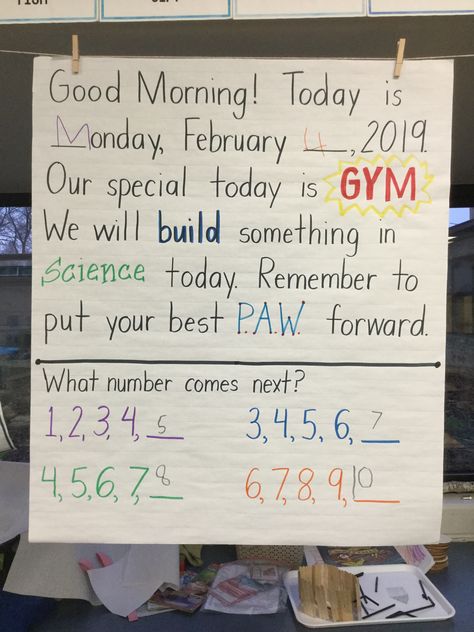 Good Morning! Today is
Monday, February 4, 2019.
Our special today is GYM
We will build something in
Science today. Remember to
put your best P.A.W. forward.
What number comes next?
1, 2, 3, 4, 5
3, 4, 5, 6, 7
4, 5, 6, 7, 8
6, 7, 8, 9, 10